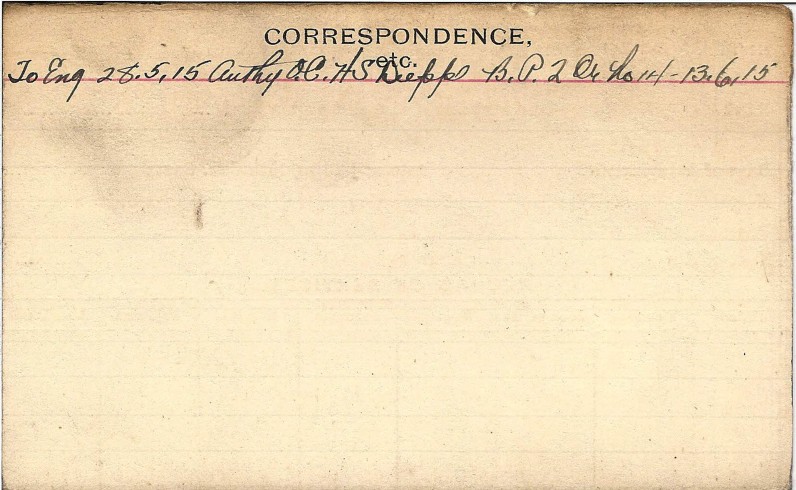 CORRESPONDENCE,
etc.
To Eng 28.5,15 Authy O.C. HS Diepps B.P. 2 Or No 14-13.6,15